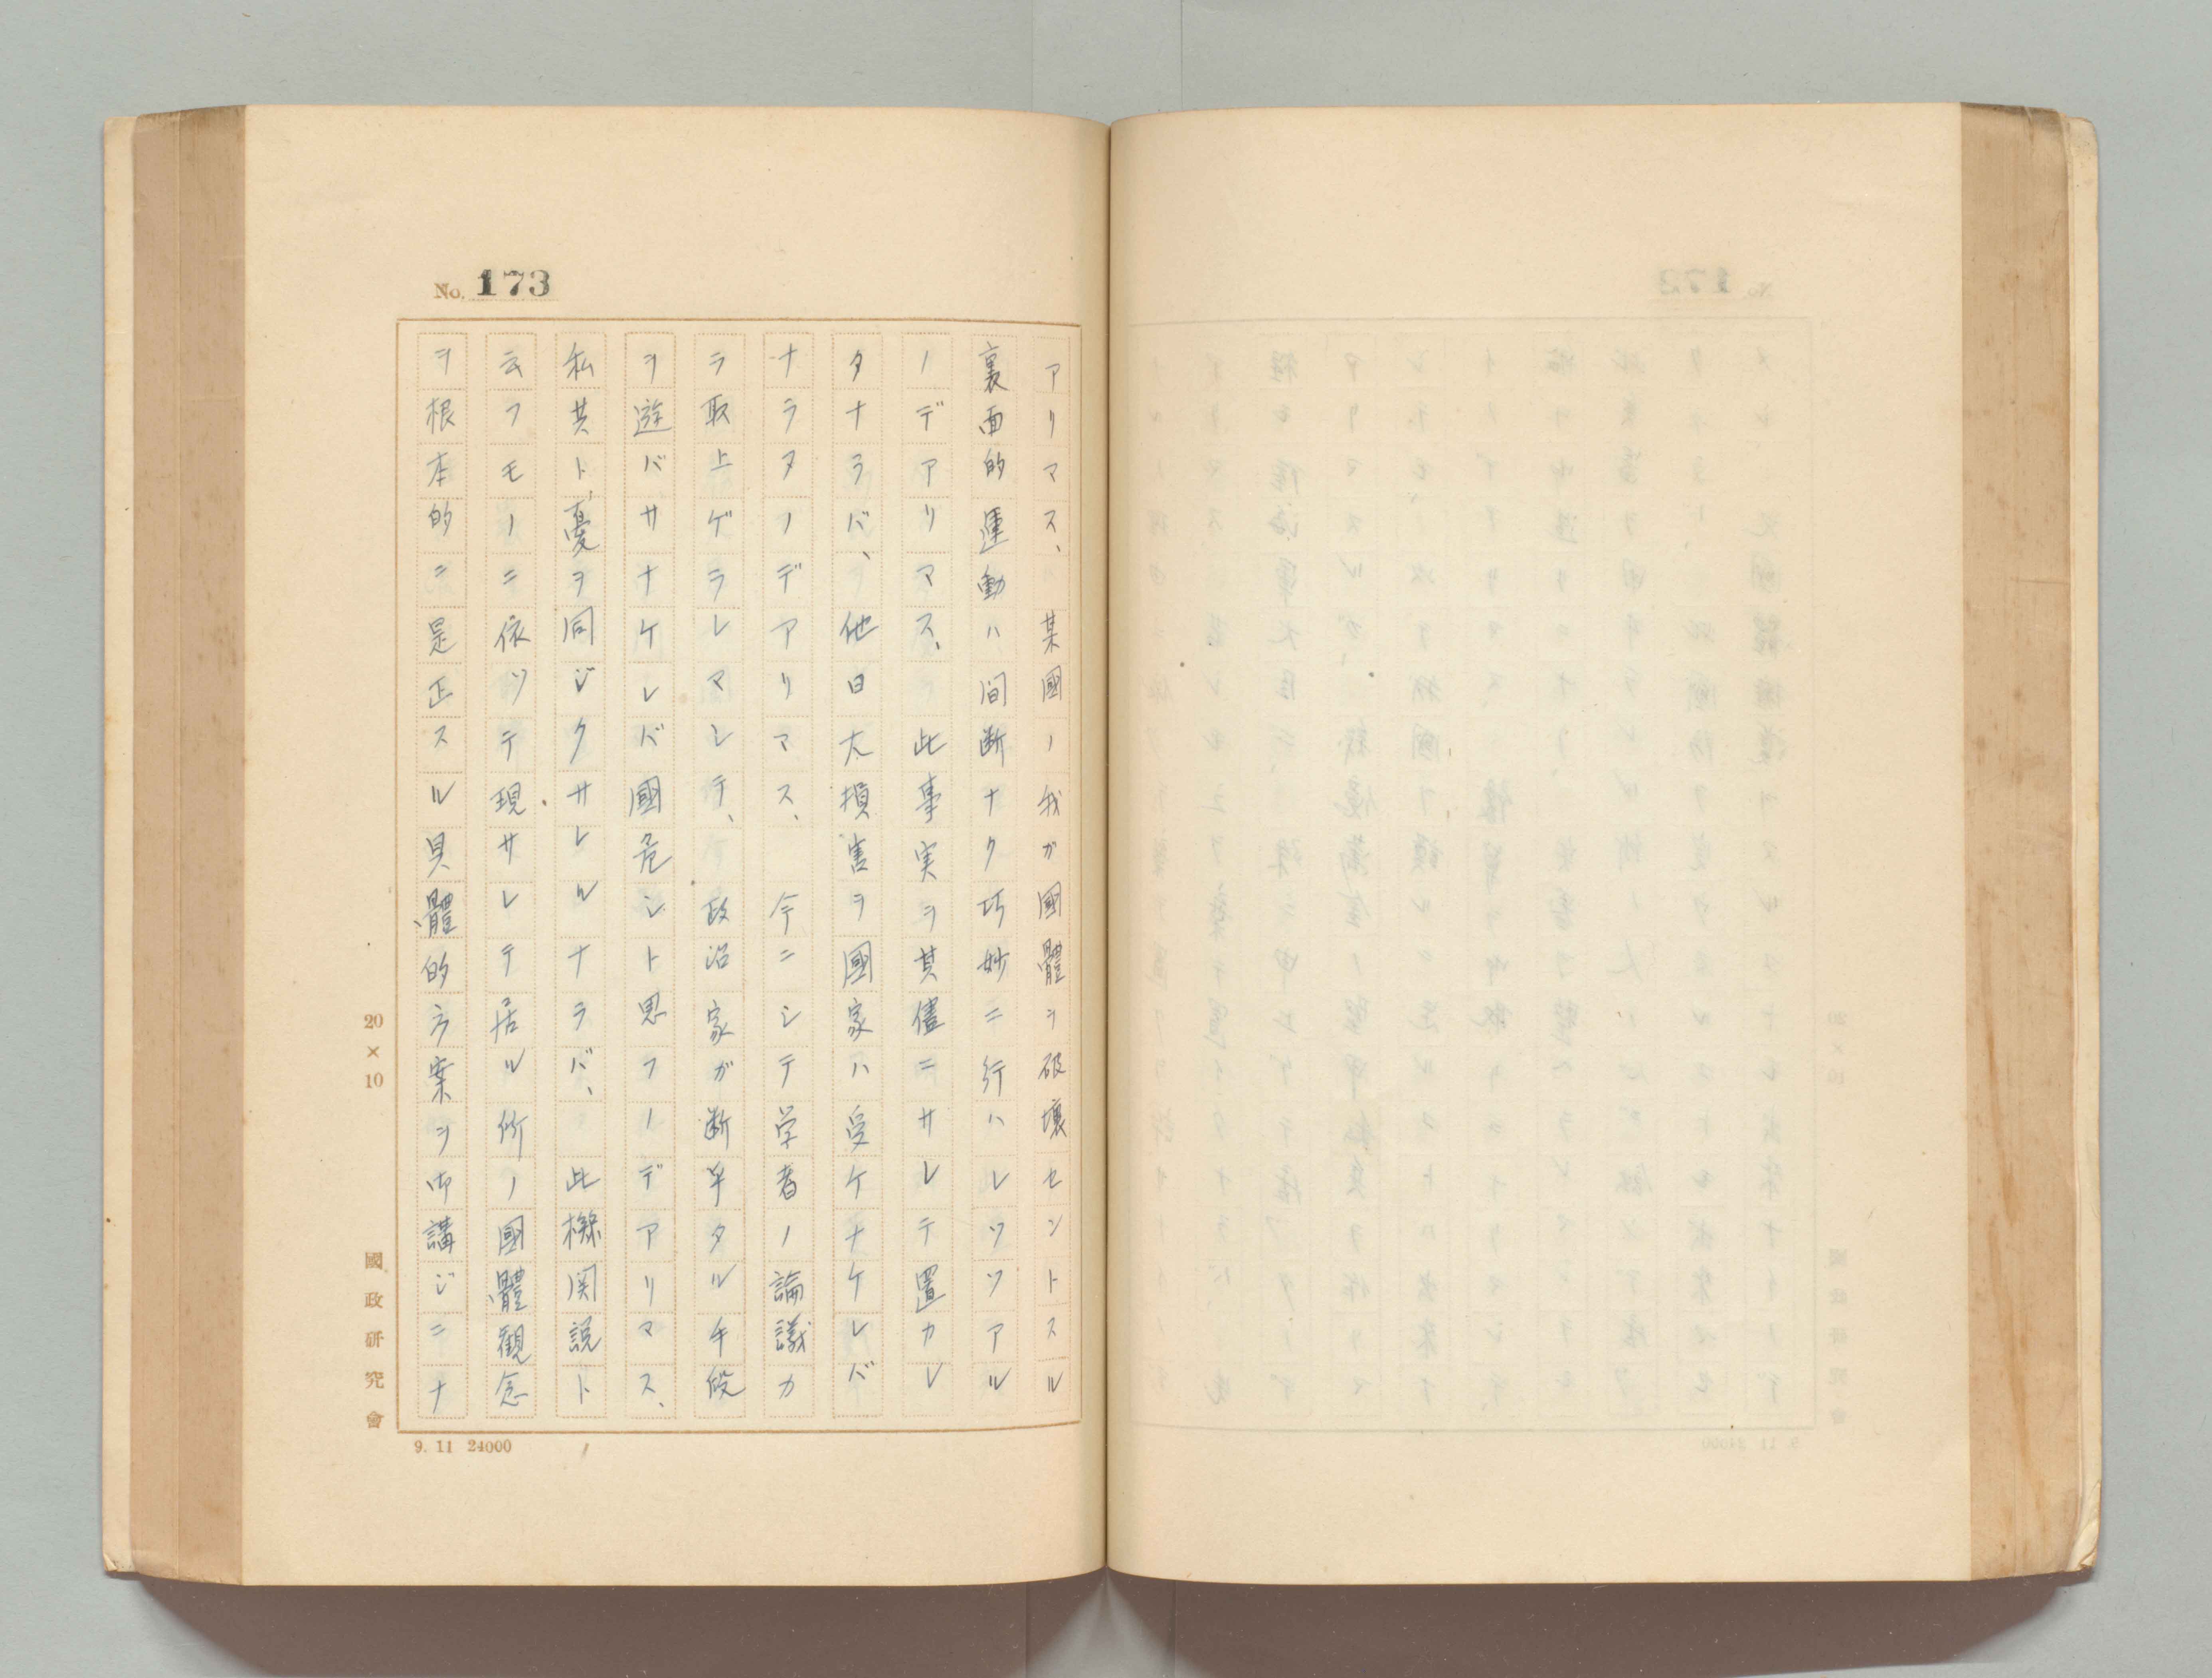 No. 173
アリマス、某國ノ我ガ國體ヲ破壞セントスル
裏面的運動ハ間断ナク巧妙ニ行ハレツツアル
ノデアリマス、此事実ヲ其儘ニサレテ置カレ
タナラバ、他日大損害ヲ國家ハ受ケナケレバ
ナラヌノデアリマス、今ニシテ学者ノ論議カ
ラ取上ゲラレマシテ、政治家ガ断乎タル手段
ヲ遊バサナケレバ國危シト思フノデアリマス、
私共ト憂ヲ同ジクサレルナラバ、此機関説ト
云フモノニ依ツテ現サレテ居ル所ノ國體観念
ヲ根本的ニ是正スル具體的方案ヲ御講ジニナ
20×10
國政研究會
9. 11 24000